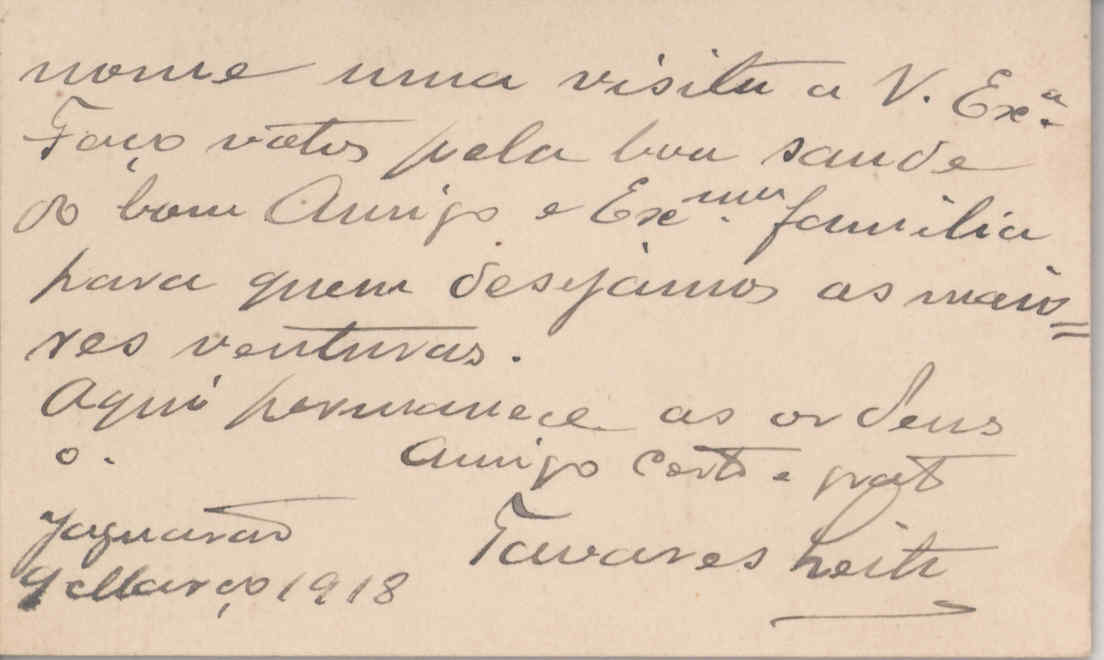 nome uma visita a V. Exª.
Faço votos pela boa saude
do bom Amigo e Ex.ma familia
para quem desejamos as maio=
res venturas.
Aqui permanece as ordens
o. Amigo Certo e grat
Jaguarão Tavares Leite
9 Março 1918